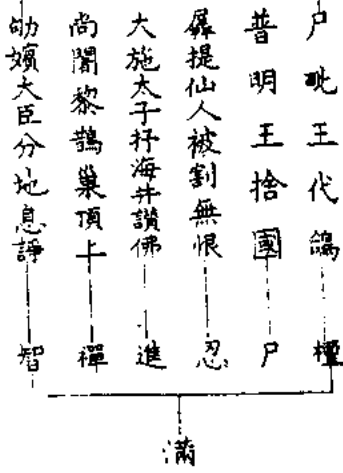 尸毗王代鴿 檀
普明王捨國 尸
羼提仙人被割無恨 忍
大施太子抒海并讚佛 進
尚闍黎鵲巢頂上 禪
劬嬪大臣分地息諍 智
滿